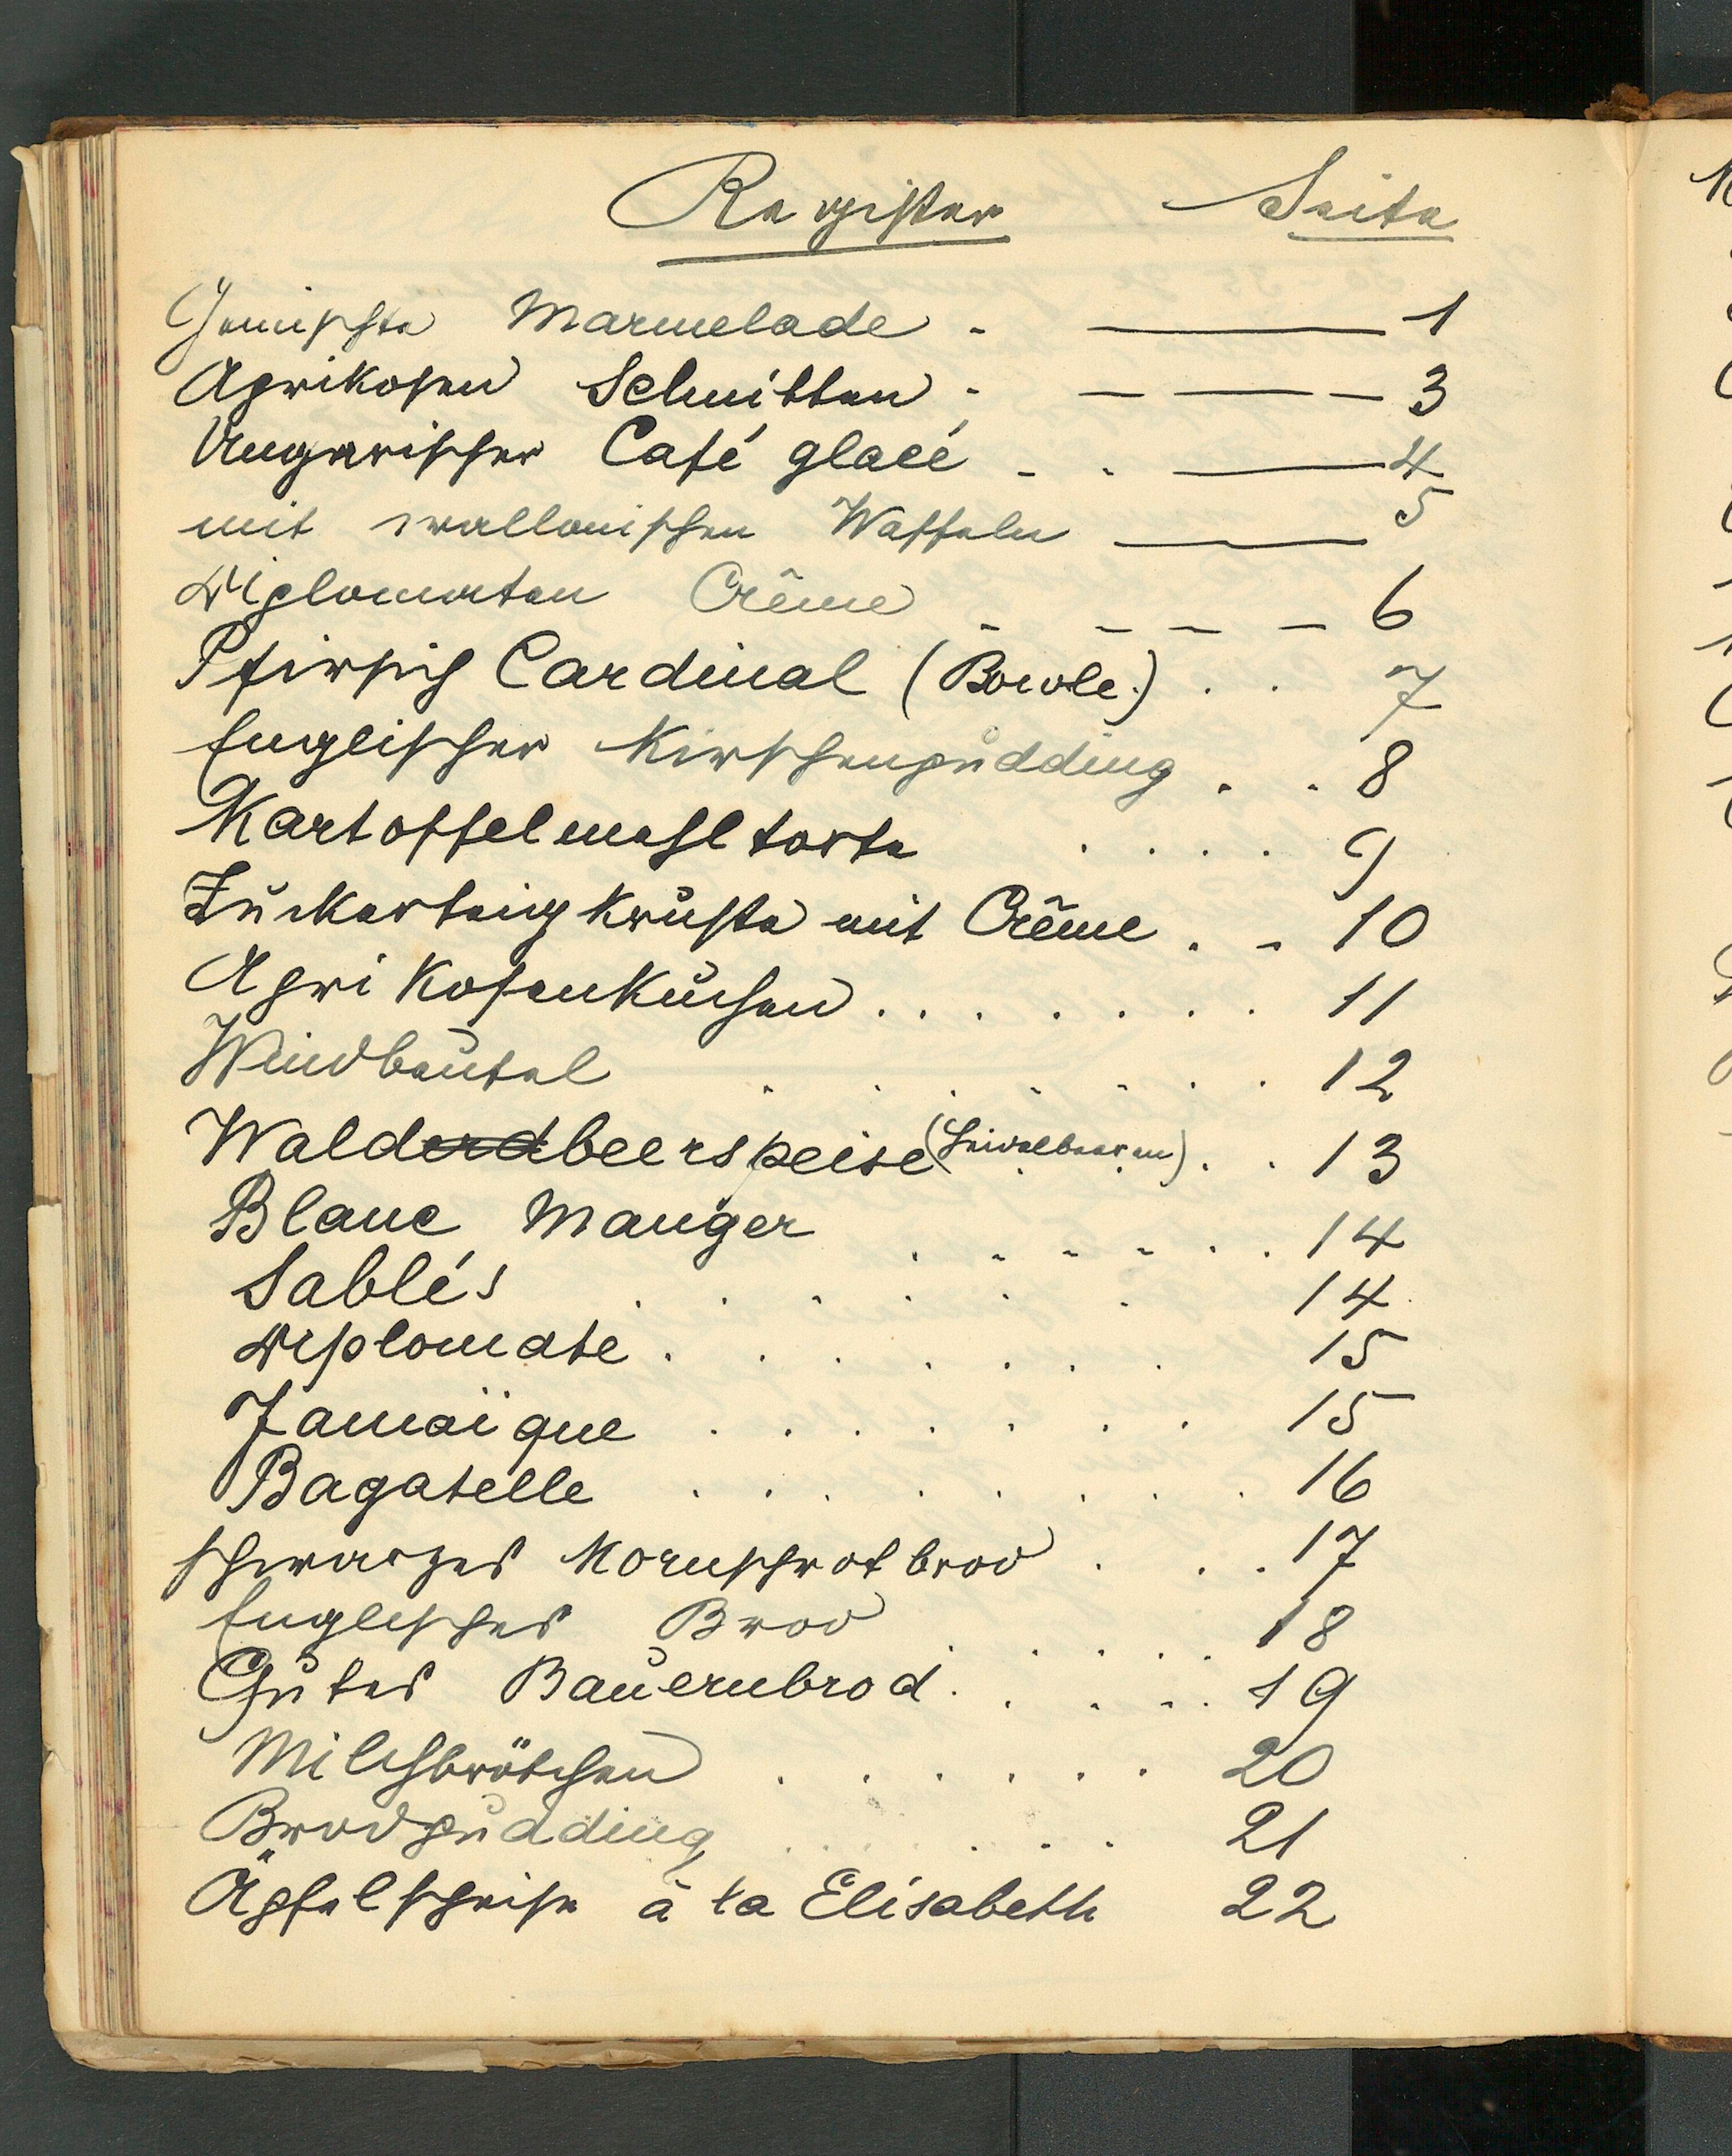 Register Seite
Gemischte Marmelade - ——— 1
Aprikosen Schnitten - — — — 3
Ungarischer Café glacé - - ——— 4
mit wallonischen Waffeln ——— 5
Diplomaten Crême - - - - 6
Pfirsich Cardinal (Bowle.) . . 7
Englischer Kirschenpudding . . 8
Kartoffelmehltorte . . . . 9
Zuckerteigkruste mit Crême . - 10
Aprikosenkuchen . . . . . . . 11
Windbeutel . . . . . . . 12
Walderdbeerspeise (Heidelbeeren) . . 13
Blanc Manger . . . . . . 14
Sablés . . . . . . 14
Diplomate . . . . . . . 15
Jamaïque . . . . . . . 15
Bagatelle . . . . . . . . 16
schwarzes Kornschrotbrod . . . 17
Englisches Brod . . . . . 18
Gutes Bauernbrod . . . . . 19
Milchbrötchen . . . . . . 20
Brodpudding . . . . . . 21
Äpfelspeise à la Elisabeth 22